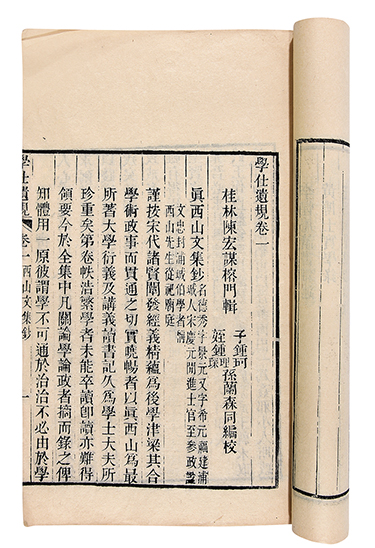 學仕遺規卷一
桂林陳宏謀榕門輯
子鍾珂
姪鍾理
琛
孫蘭森同編校
眞西山文集鈔
名德秀字景元又字希元福建浦
城人宋慶元間進士官至參政諡
文忠封浦城伯學者稱
西山先生從祀廟庭
謹按宋代諸賢闡發經義精蘊為後學津梁其合
學術政事而貫通之切實曉暢者以眞西山為最
所著大學衍義及講義讀書記久為學士大夫所
珍重矣第卷帙浩繁學者未能卒讀卽讀亦難得
領要今於全集中凡關論學論政者摘而錄之俾
知體用一原彼謂學不可通於治治不必由於學
學仕遺規 卷一 西山文集鈔 一